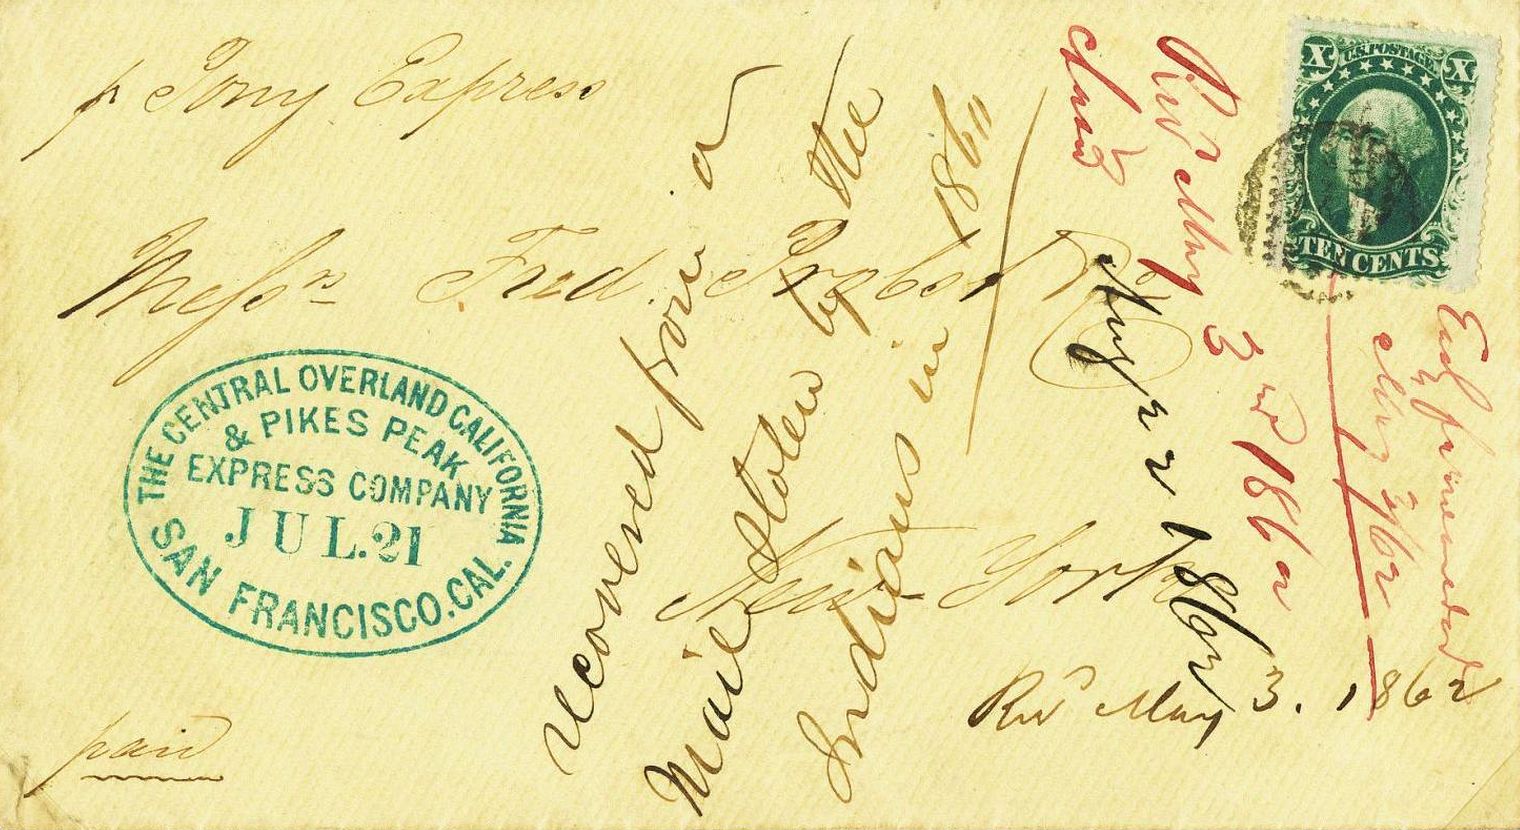 p Pony Express
Messrs Fred. Probst & Co
New York
paid
THE CENTRAL OVERLAND CALIFORNIA
& PIKES PEAK
EXPRESS COMPANY
JUL.21
SAN FRANCISCO.CAL.
recovered from a
mail stolen by the
Indians in 1860
X U.S. POSTAGE X
TEN CENTS
Recd May 3rd 1862
ansd
Augt 2 1862
May 3/62
Recd May 3. 1862